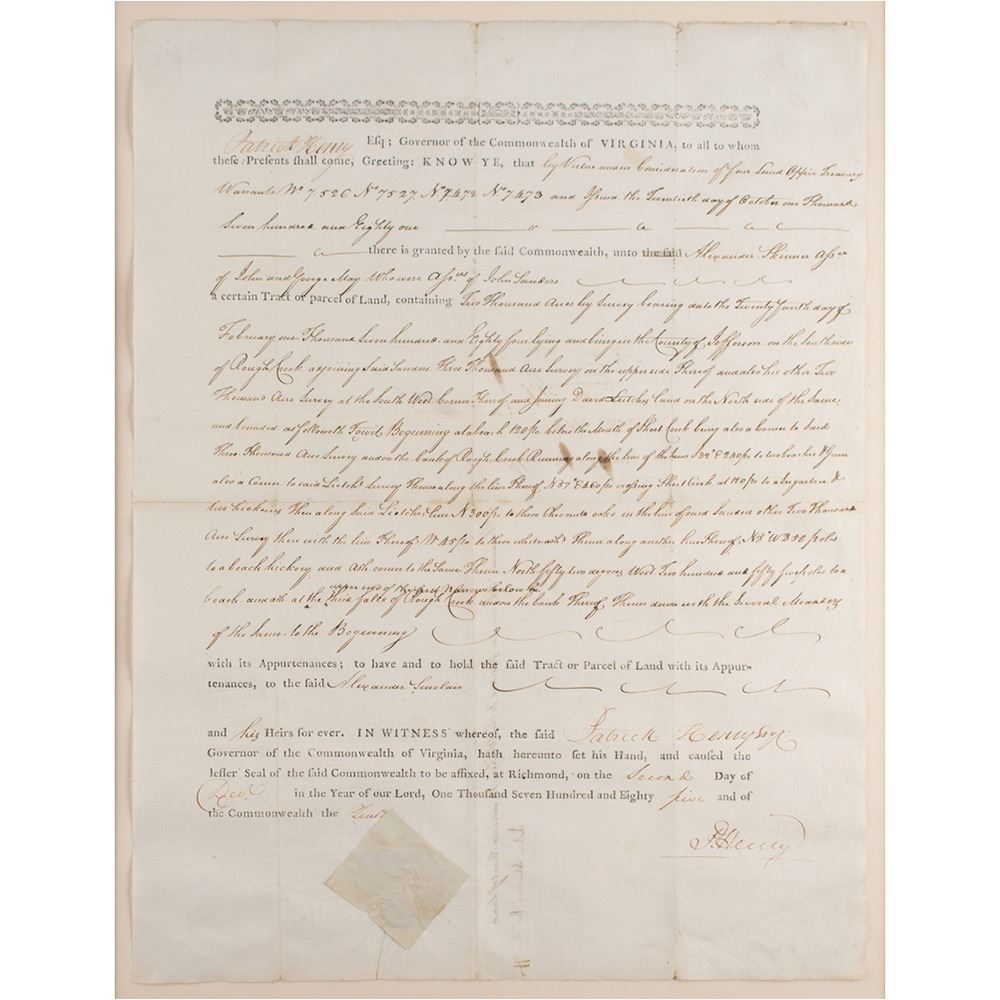 Patrick Henry Esq; Governor of the Commonwealth of VIRGINIA, to all to whom
theſe Preſents ſhall come, Greeting: KNOW YE, that by Virtue and in Consideration of four Land Office Treasury
Warrants No 7526 No 7527 No 7472 No 7473 and Issued the Twentieth day of October one Thousand
Seven hundred and Eighty one
there is granted by the ſaid Commonwealth, unto the ſaid Alexander Skinner Assee
of John and George May Who were Assees of John Sanders
a certain Tract or parcel of Land, containing Two Thousand Acres by Survey bearing date the Twenty fourth day of
February one Thousand Seven hundred and Eighty four lying and being in the County of Jefferson on the South side
of Rough Creek adjoining Said Sanders Three Thousand Acre Survey on the upper side Thereof and also his other Two
Thousand Acre Survey at the South West Corner Thereof and Joining David Leitches Land on the North side of the Same
and bounded as followeth Towit Begining at a beach 120 po below the Mouth of Short Creek being also a Corner to Said
Three Thousand Acre Survey and on the bank of Rough Creek Running along the line of the Same S 32° E 240 po to two beaches & Gum
also a Corner to said Leitchs Survey Thence along the line Thereof N 37 E 460 po crossing Short Creek at 190 po to a Sugartree &
two hickories Then along Said Leitches line N 300 po to three Chesnut oaks in the line of said Sanders other Two Thousand
Acre Survey then with the line Thereof W 45 po to three whiteoaks Thence along another line Thereof N 5° W 250 poles
to a beach hickory and Ash corner to the Same Thence North fifty two degrees West Two hundred and fifty five poles to a
upper end of the Narrows below the
beach and ash at the Third falls of Rough Creek and on the bank Thereof Thence down with the Several Meanders
of the Same to the Begining
with its Appurtenances; to have and to hold the ſaid Tract or Parcel of Land with its Appur-
tenances, to the ſaid Alexander Sinclair
and his Heirs for ever. IN WITNESS whereof, the ſaid Patrick Henry Esqr
Governor of the Commonwealth of Virginia, hath hereunto ſet his Hand, and cauſed the
leſſer Seal of the ſaid Commonwealth to be affixed, at Richmond, on the Second Day of
Decr. in the Year of our Lord, One Thouſand Seven Hundred and Eighty five and of
the Commonwealth the Tenth
P. Henry